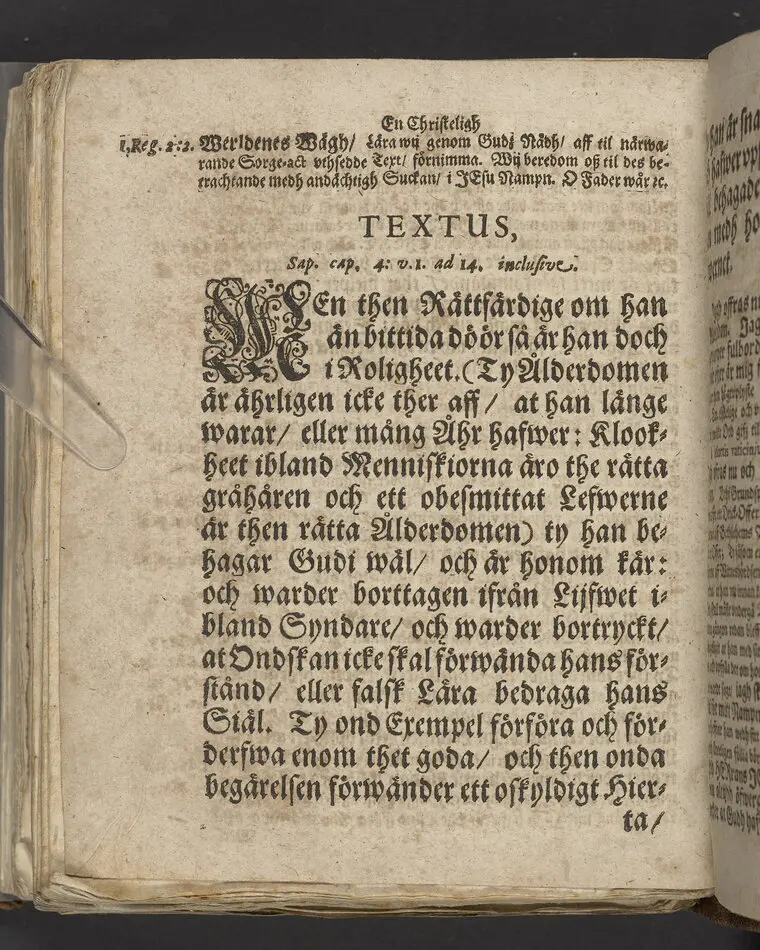 En Christeligh
1. Reg. 2:2. Werldenes Wägh/ Lära wij genom Gudz Nådh/ aff til närwa-
rande Sorge-act vthsedde Text/ förnimma. Wij beredom oß til des be-
trachtande medh andächtigh Suckan/ i JEsu Nampn. O Fader wår ꝛc.
TEXTUS,
Sap. cap. 4: v. 1. ad 14. inclusive.
MEn then Rättfärdige om han
än bittida döör så är han doch
i Roligheet. (Ty Ålderdomen
är ährligen icke ther aff/ at han länge
warar/ eller mång Åhr hafwer: Klook-
heet ibland Menniskiorna äro the rätta
gråhåren och ett obesmittat Lefwerne
är then rätta Ålderdomen) ty han be-
hagar Gudi wäl/ och är honom kär:
och warder borttagen ifrån Lijfwet i-
bland Syndare/ och warder bortryckt/
at Ondskan icke skal förwända hans för-
stånd/ eller falsk Lära bedraga hans
Siäl. Ty ond Exempel förföra och för-
derfwa enom thet goda/ och then onda
begärelsen förwänder ett oskyldigt Hier-
ta/